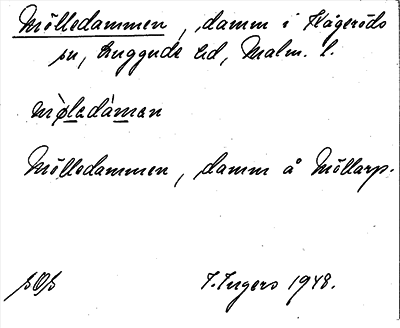 Mölledammen, damm i Kågeröds
sn, Luggude hd, Malm. l.
møledàmen
Mölledammen, damm å Möllarp.
sOs
I. Ingers 1948.